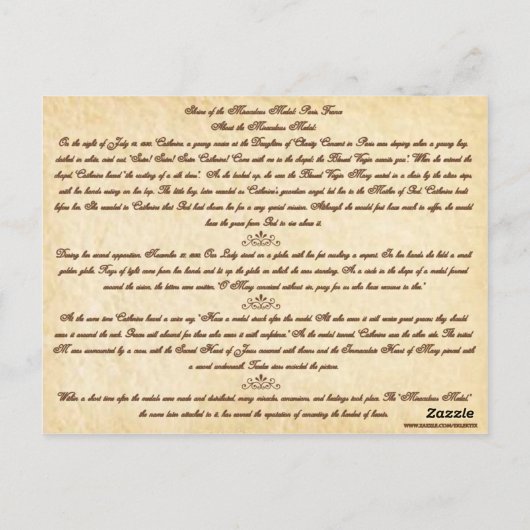 Shrine of the Miraculous Medal: Paris, France
About the Miraculous Medal:
On the night of July 18, 1830, Catherine, a young novice at the Daughters of Charity Convent in Paris was sleeping when a young boy,
clothed in white, cried out, "Sister! Sister! Sister Catherine! Come with me to the chapel; the Blessed Virgin awaits you!" When she entered the
chapel, Catherine heard "the rustling of a silk dress". As she looked up, she saw the Virgin Mary seated in a chair by the altar steps
with her hands resting on her lap. The little boy, later revealed as Catherine's guardian angel, led her to the Mother of God. Catherine knelt
before her. She revealed to Catherine that God had chosen her for a very special mission. Although she would first have much to suffer, she would
have the grace from God to rise above it.
During her second apparition, November 27, 1830, Our Lady stood on a globe, with her feet crushing a serpent. In her hands she held a small
golden globe. Rays of light came from her hands and lit up the globe on which she was standing. As a circle in the shape of a medal formed
around the vision, the letters were written, "O Mary conceived without sin, pray for us who have recourse to thee."
At the same time Catherine heard a voice say, "Have a medal struck after this model. All who wear it will receive great graces; they should
wear it around the neck. Graces will abound for those who wear it with confidence." As the medal turned, Catherine saw the other side. The initial
M was surmounted by a cross, with the Sacred Heart of Jesus crowned with thorns and the Immaculate Heart of Mary pierced with
a sword underneath. Twelve stars encircled the picture.
Within a short time after the medals were made and distributed, many miracles, conversions, and healings took place. The "Miraculous Medal,"
the name later attached to it, has earned the reputation of converting the hardest of hearts.
Zazzle
WWW.ZAZZLE.COM/